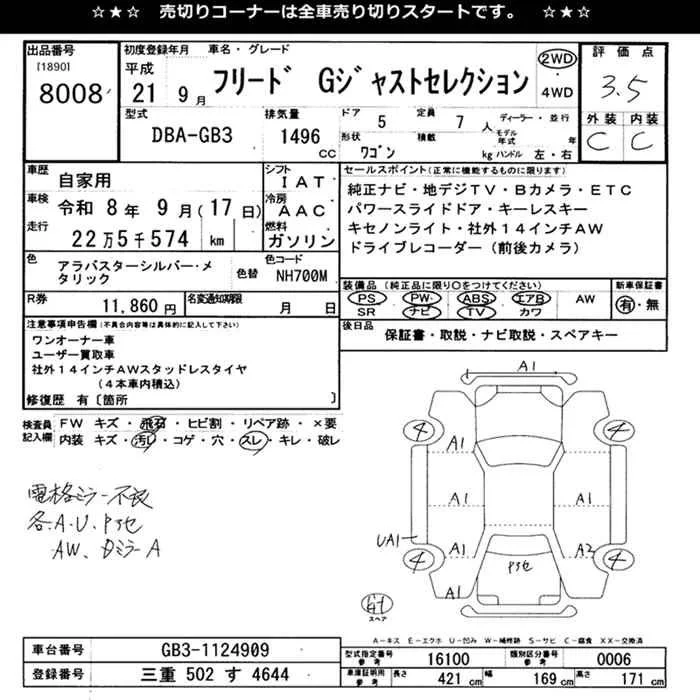 ☆★☆ 売切りコーナーは全車売り切りスタートです。 ☆★☆
出品番号 初度登録年月 車名・グレード 評価点
[1890] 平成 2WD
8008 21 9月 フリード Gジャストセレクション ・ 4WD 3.5
型式 排気量 ドア 5 定員 7 人 ディーラー・並行 外装 内装
DBA-GB3 1496 cc 形状 ワゴン 積載 kg モデル年式 年 ハンドル 左・右 C C
車歴 自家用 シフト IAT セールスポイント(正常に機能するものに限ります)
車検 令和 8年 9月(17日) 冷房 AAC 純正ナビ・地デジTV・Bカメラ・ETC
走行 22万5千574 km 燃料 ガソリン パワースライドドア・キーレスキー
キセノンライト・社外14インチAW
ドライブレコーダー(前後カメラ)
色 アラバスターシルバー・メタリック 色替 色コード NH700M
装備品(純正品に限り○をつけてください) 新車保証書
PS・PW・ABS・エアB AW 有・無
SR ナビ・TV カワ
R券 11,860円 名変通知期限 月 日
後日品 保証書・取説・ナビ取説・スペアキー
注意事項申告欄(不具合内容等は具体的に記入して下さい)
ワンオーナー車
ユーザー買取車
社外14インチAWスタッドレスタイヤ
(4本車内積込)
修復歴 有〔箇所 〕
検査員記入欄 FW キズ・飛石・ヒビ割・リペア跡・×要
内装 キズ・汚レ・コゲ・穴・スレ・キレ・破レ
電格ミラー不良
各A.U.P3セ
AW、ミラーA
A1
4 4
A1
A1 A1
UA1 A1 A2
4 4
P3セ
A1
スペア
A-キズ E-エクボ U-凹み W-補修跡 S-サビ C-腐食 XX-交換済
車台番号 GB3-1124909 型式指定番号 参考 16100 類別区分番号 参考 0006
登録番号 三重 502 す 4644 車庫証明用 参考 長さ 421cm 幅 169cm 高さ 171cm